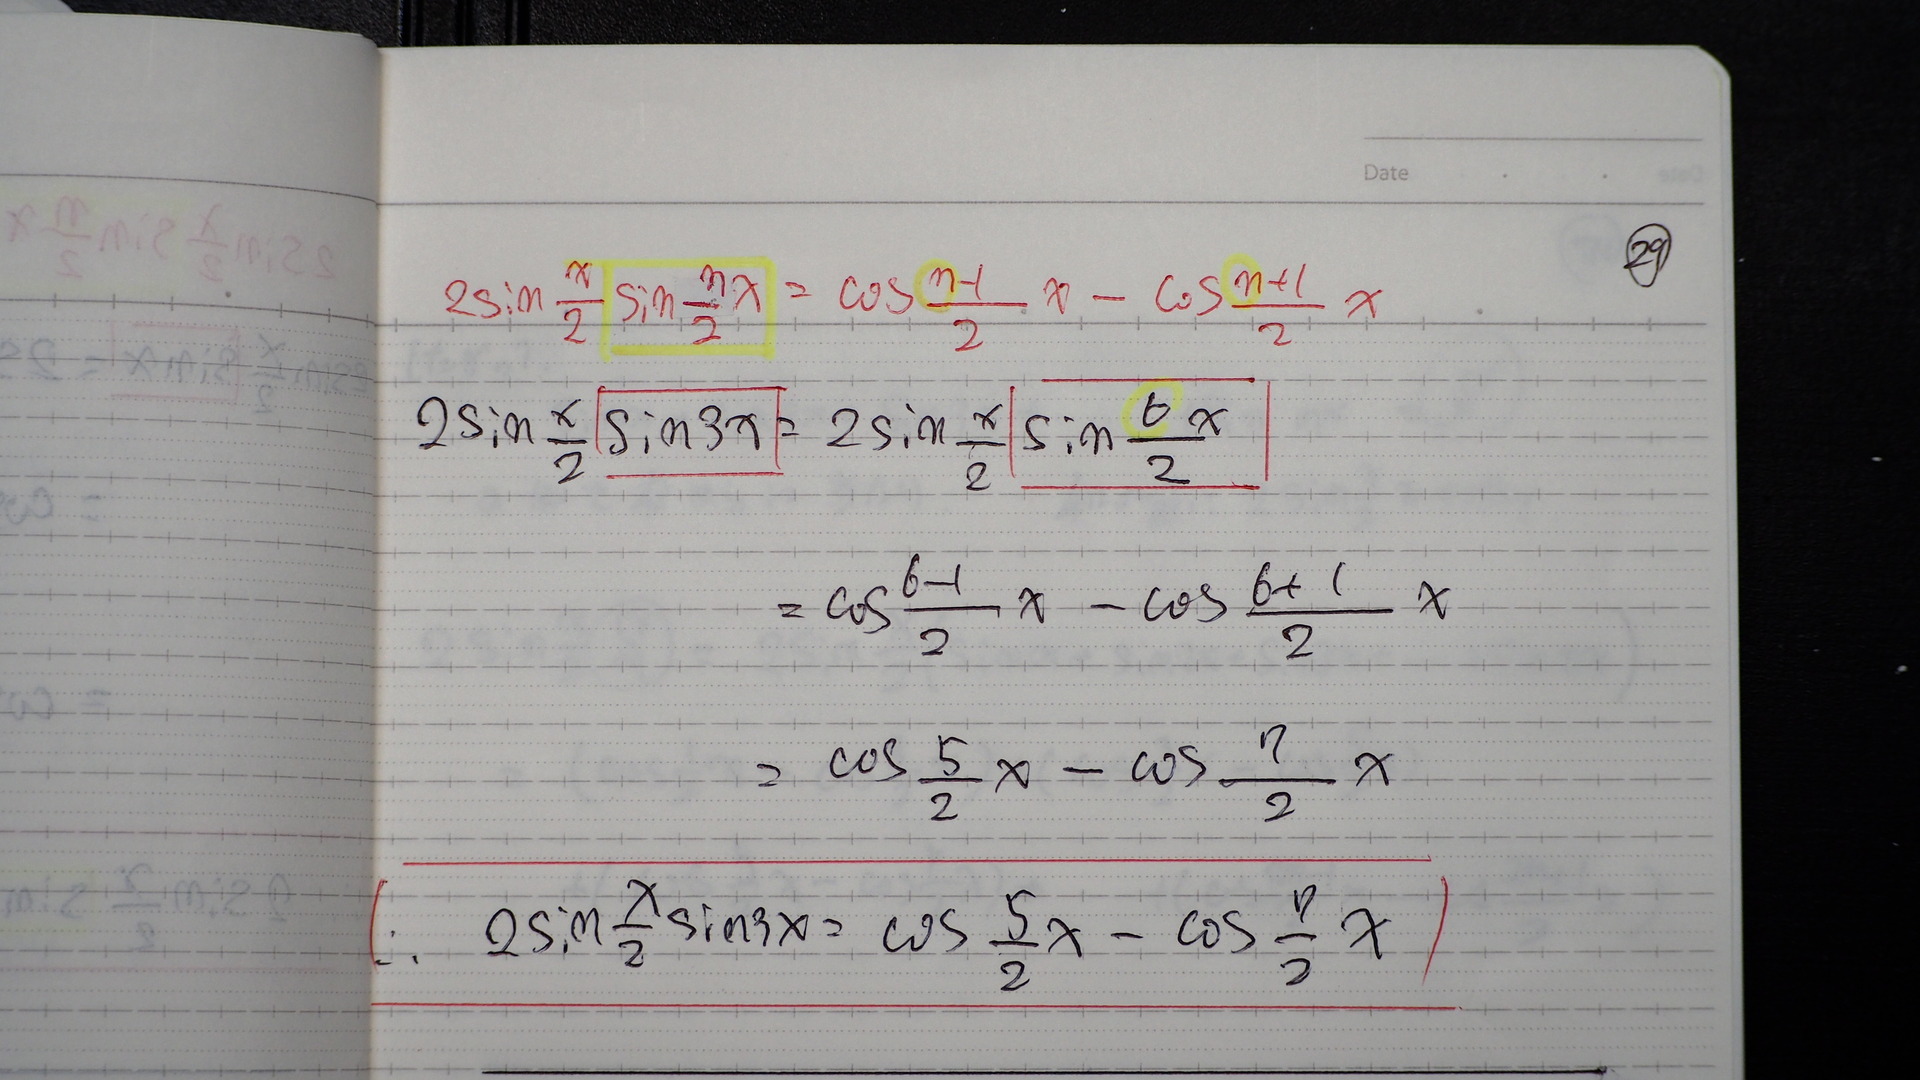 Date
29
2sin x/2 sin n/2 x = cos (n-1)/2 x - cos (n+1)/2 x
2sin x/2 sin3x = 2sin x/2 sin 6/2 x
= cos (6-1)/2 x - cos (6+1)/2 x
= cos 5/2 x - cos 7/2 x
∴ 2sin x/2 sin3x = cos 5/2 x - cos 7/2 x